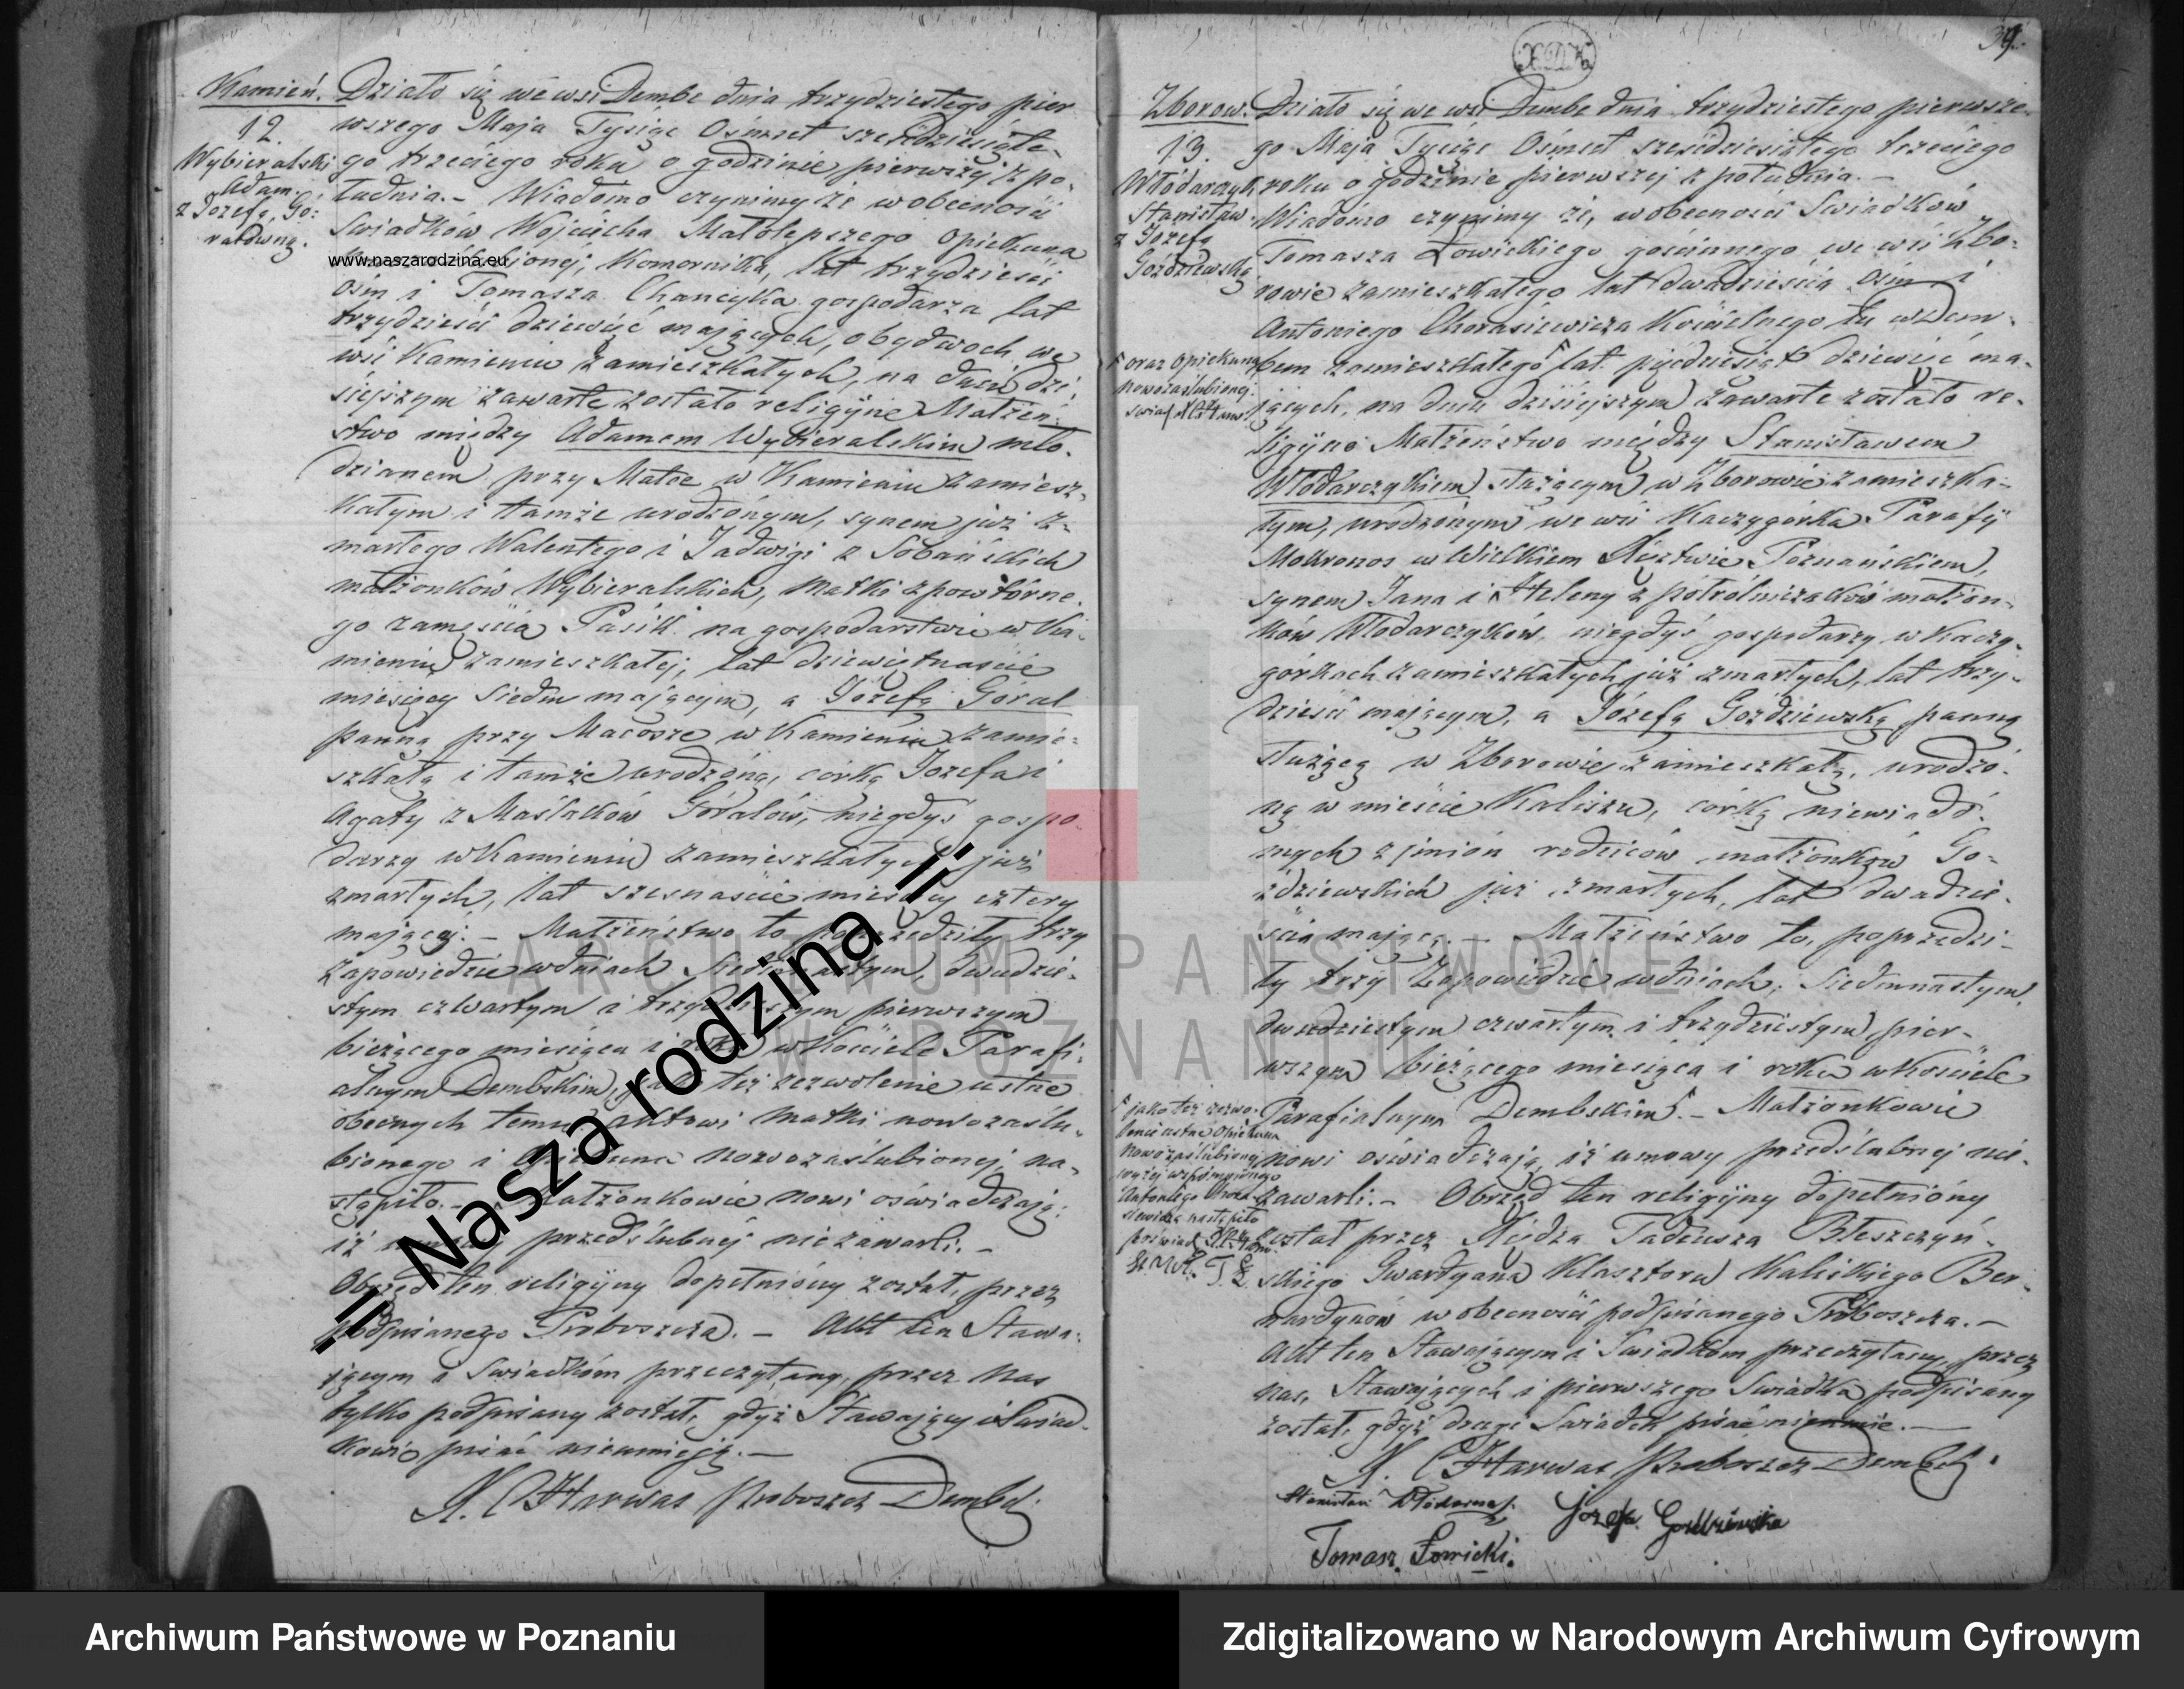 Kamień.
12.
Wybieralski
Adam.
z Józefą Gó-
ralówną.
Działo się we wsi Dembe dnia trzydziestego pier
wszego Maja Tysiąc Ośmset sześćdziesiąte-
go trzeciego roku o godzinie pierwszej z po-
łudnia. – Wiadomo czynimy że w obecności
Swiadków Wojciecha Małolepszego opiekuna
www.naszarodzina.eu
Komornika, lat trzydzieści
ośm i Tomasza gospodarza lat
trzydzieści dziewięć mających, obydwóch we
wsi Kamieniu zamieszkałych, na dniu dzi-
siejszym zawarte zostało religijne Małżeń-
stwo między Adamem Wybieralskim mło-
dzianem przy Matce w Kamieniu zamiesz-
kałym i tamże urodzonym, synem już z-
marłego Walentego i Jadwigi z Sobańskich
małżonków Wybieralskich, matki z powtórne-
go zamęścia Pasik na gospodarstwie w Ka-
mieniu zamieszkałej, lat dziewiętnaście
miesięcy siedm mającym, a Józefą Goral
panną przy Macosze w Kamieniu zamie-
szkałą i tamże urodzoną, córką Jozefa i
Agaty z Maślaków Góralów, niegdyś gospo-
darzy w Kamieniu zamieszkałych już
zmarłych, lat szesnaście miesięcy cztery
mającej. – Małżeństwo to poprzedziły trzy
zapowiedzie w dniach siedmnastym, dwudzie-
stym czwartym i trzydziestym pierwszym
bieżącego miesiąca i roku w Kościele Parafi-
alnym Dembskim, jako też zezwolenie ustne
obecnych temu aktowi matki nowozaślu-
bionego i Opiekuna nowozaślubionej, na-
stąpiło. – Małżonkowie nowi oświadczają:
iż umowy przedślubnej niezawarli. –
Obrzęd ten religijny dopełniony został, przez
podpisanego Proboszcza. – Akt ten Stawa-
jącym i Swiadkom przeczytany, przez nas
tylko podpisany został, gdyż Stawający i Swiad-
kowie pisać nieumieją. –
X. Harwas Proboszcz Dembsk:
= Nasza rodzina =
39.
Zborow.
13.
Włodarczyk
Stanisław
z Józefą
Goździewską
Działo się we wsi Dembe dnia trzydziestego pierwsze-
go Maja Tysiąc Ośmset sześćdziesiątego trzeciego
roku o godzinie pierwszej z południa. –
Wiadomo czynimy że, w obecności Swiadków
Tomasza Łowickiego gościnnego we wsi Zbo-
rowie zamieszkałego lat dwadzieścia ośm i
Antoniego Chorasiewicza Kościelnego tu w Dem-
bem zamieszkałego lat pięćdziesiąt dziewięć ma-
jących, na dniu dzisiejszym zawarte zostało re-
ligijne Małżeństwo między Stanisławem
Włodarczykiem służącym w Zborowie zamieszka-
łym, urodzonym we wsi Kaczygórka Parafij
Mokronos w Wielkiem Xięztwie Poznańskiem,
synem Jana i Heleny z półrolniczaków małżon-
ków Włodarczyków, niegdyś gospodarzy w Kaczy-
górkach zamieszkałych już zmarłych, lat trzy-
dzieści mającym, a Józefą Goździewską panną
służącą w Zborowie zamieszkałą, urodzo-
ną w mieście Kaliszu, córką niewiado-
mych z imion rodziców małżonków Go-
ździewskich już zmarłych, lat dwadzie-
ścia mającą. – Małżeństwo to, poprzedzi-
ły trzy Zapowiedzie w dniach: siedmnastym,
dwudziestym czwartym i trzydziestym pier-
wszym bieżącego miesiąca i roku w Kościele
Parafialnym Dembskim. – Małżonkowie
nowi oświadczają, iż umowy przedślubnej nie-
zawarli. – Obrzęd ten religijny dopełniony
został przez Xiędza Tadeusza Błeszczyń-
skiego Gwardyana Klasztoru Kaliskiego Ber-
nardynów w obecności podpisanego Proboszcza. –
Akt ten Stawającym i Swiadkom przeczytany, przez
nas, Stawających i pierwszego Swiadka podpisany
został, gdyż drugi Swiadek pisać nieumie. –
X. Harwas Proboszcz Dembsk:
Józefa Gozdziewska
Tomasz Łowicki.
oraz opiekuna
nowozaślubionej
jako też zezwo-
lenie ustne opiekuna
nowozaślubionej
wyżej wspomnionego
Antoniego Chora-
siewicza nastąpiło
ARCHIWUM PAŃSTWOWE
W POZNANIU
Archiwum Państwowe w Poznaniu
Zdigitalizowano w Narodowym Archiwum Cyfrowym